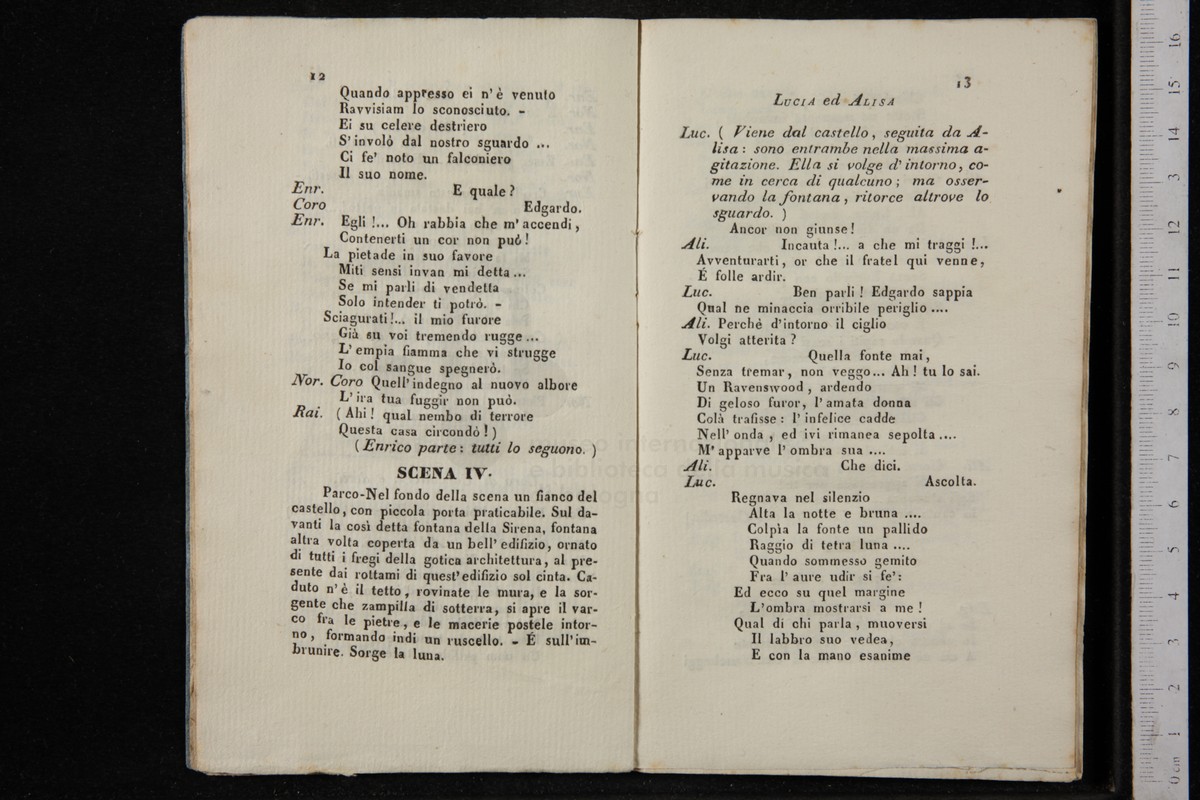 12
Quando appresso ei n'è venuto
Ravvisiam lo sconosciuto. -
Ei su celere destriero
S'involò dal nostro sguardo ...
Ci fe' noto un falconiero
Il suo nome.
Enr. E quale?
Coro Edgardo.
Enr. Egli!... Oh rabbia che m'accendi,
Contenerti un cor non può!
La pietade in suo favore
Miti sensi invan mi detta...
Se mi parli di vendetta
Solo intender ti potrò. -
Sciagurati!... il mio furore
Già su voi tremendo rugge...
L'empia fiamma che vi strugge
Io col sangue spegnerò.
Nor. Coro Quell'indegno al nuovo albore
L'ira tua fuggir non può.
Rai. (Ahi! qual nembo di terrore
Questa casa circondò!)
(Enrico parte: tutti lo seguono.)
SCENA IV.
Parco-Nel fondo della scena un fianco del
castello, con piccola porta praticabile. Sul da-
vanti la così detta fontana della Sirena, fontana
altra volta coperta da un bell'edifizio, ornato
di tutti i fregi della gotica architettura, al pre-
sente dai rottami di quest'edifizio sol cinta. Ca-
duto n'è il tetto, rovinate le mura, e la sor-
gente che zampilla di sotterra, si apre il var-
co fra le pietre, e le macerie postele intor-
no, formando indi un ruscello. - É sull'im-
brunire. Sorge la luna.
13
LUCIA ed ALISA
Luc. (Viene dal castello, seguita da A-
lisa: sono entrambe nella massima a-
gitazione. Ella si volge d'intorno, co-
me in cerca di qualcuno; ma osser-
vando la fontana, ritorce altrove lo
sguardo.)
Ancor non giunse!
Ali. Incauta!... a che mi traggi!...
Avventurarti, or che il fratel qui venne,
É folle ardir.
Luc. Ben parli! Edgardo sappia
Qual ne minaccia orribile periglio....
Ali. Perchè d'intorno il ciglio
Volgi atterita?
Luc. Quella fonte mai,
Senza tremar, non veggo... Ah! tu lo sai.
Un Ravenswood, ardendo
Di geloso furor, l'amata donna
Colà trafisse: l'infelice cadde
Nell'onda, ed ivi rimanea sepolta....
M'apparve l'ombra sua ....
Ali. Che dici.
Luc. Ascolta.
Regnava nel silenzio
Alta la notte e bruna ....
Colpìa la fonte un pallido
Raggio di tetra luna ....
Quando sommesso gemito
Fra l'aure udir si fe':
Ed ecco su quel margine
L'ombra mostrarsi a me!
Qual di chi parla, muoversi
Il labbro suo vedea,
E con la mano esanime